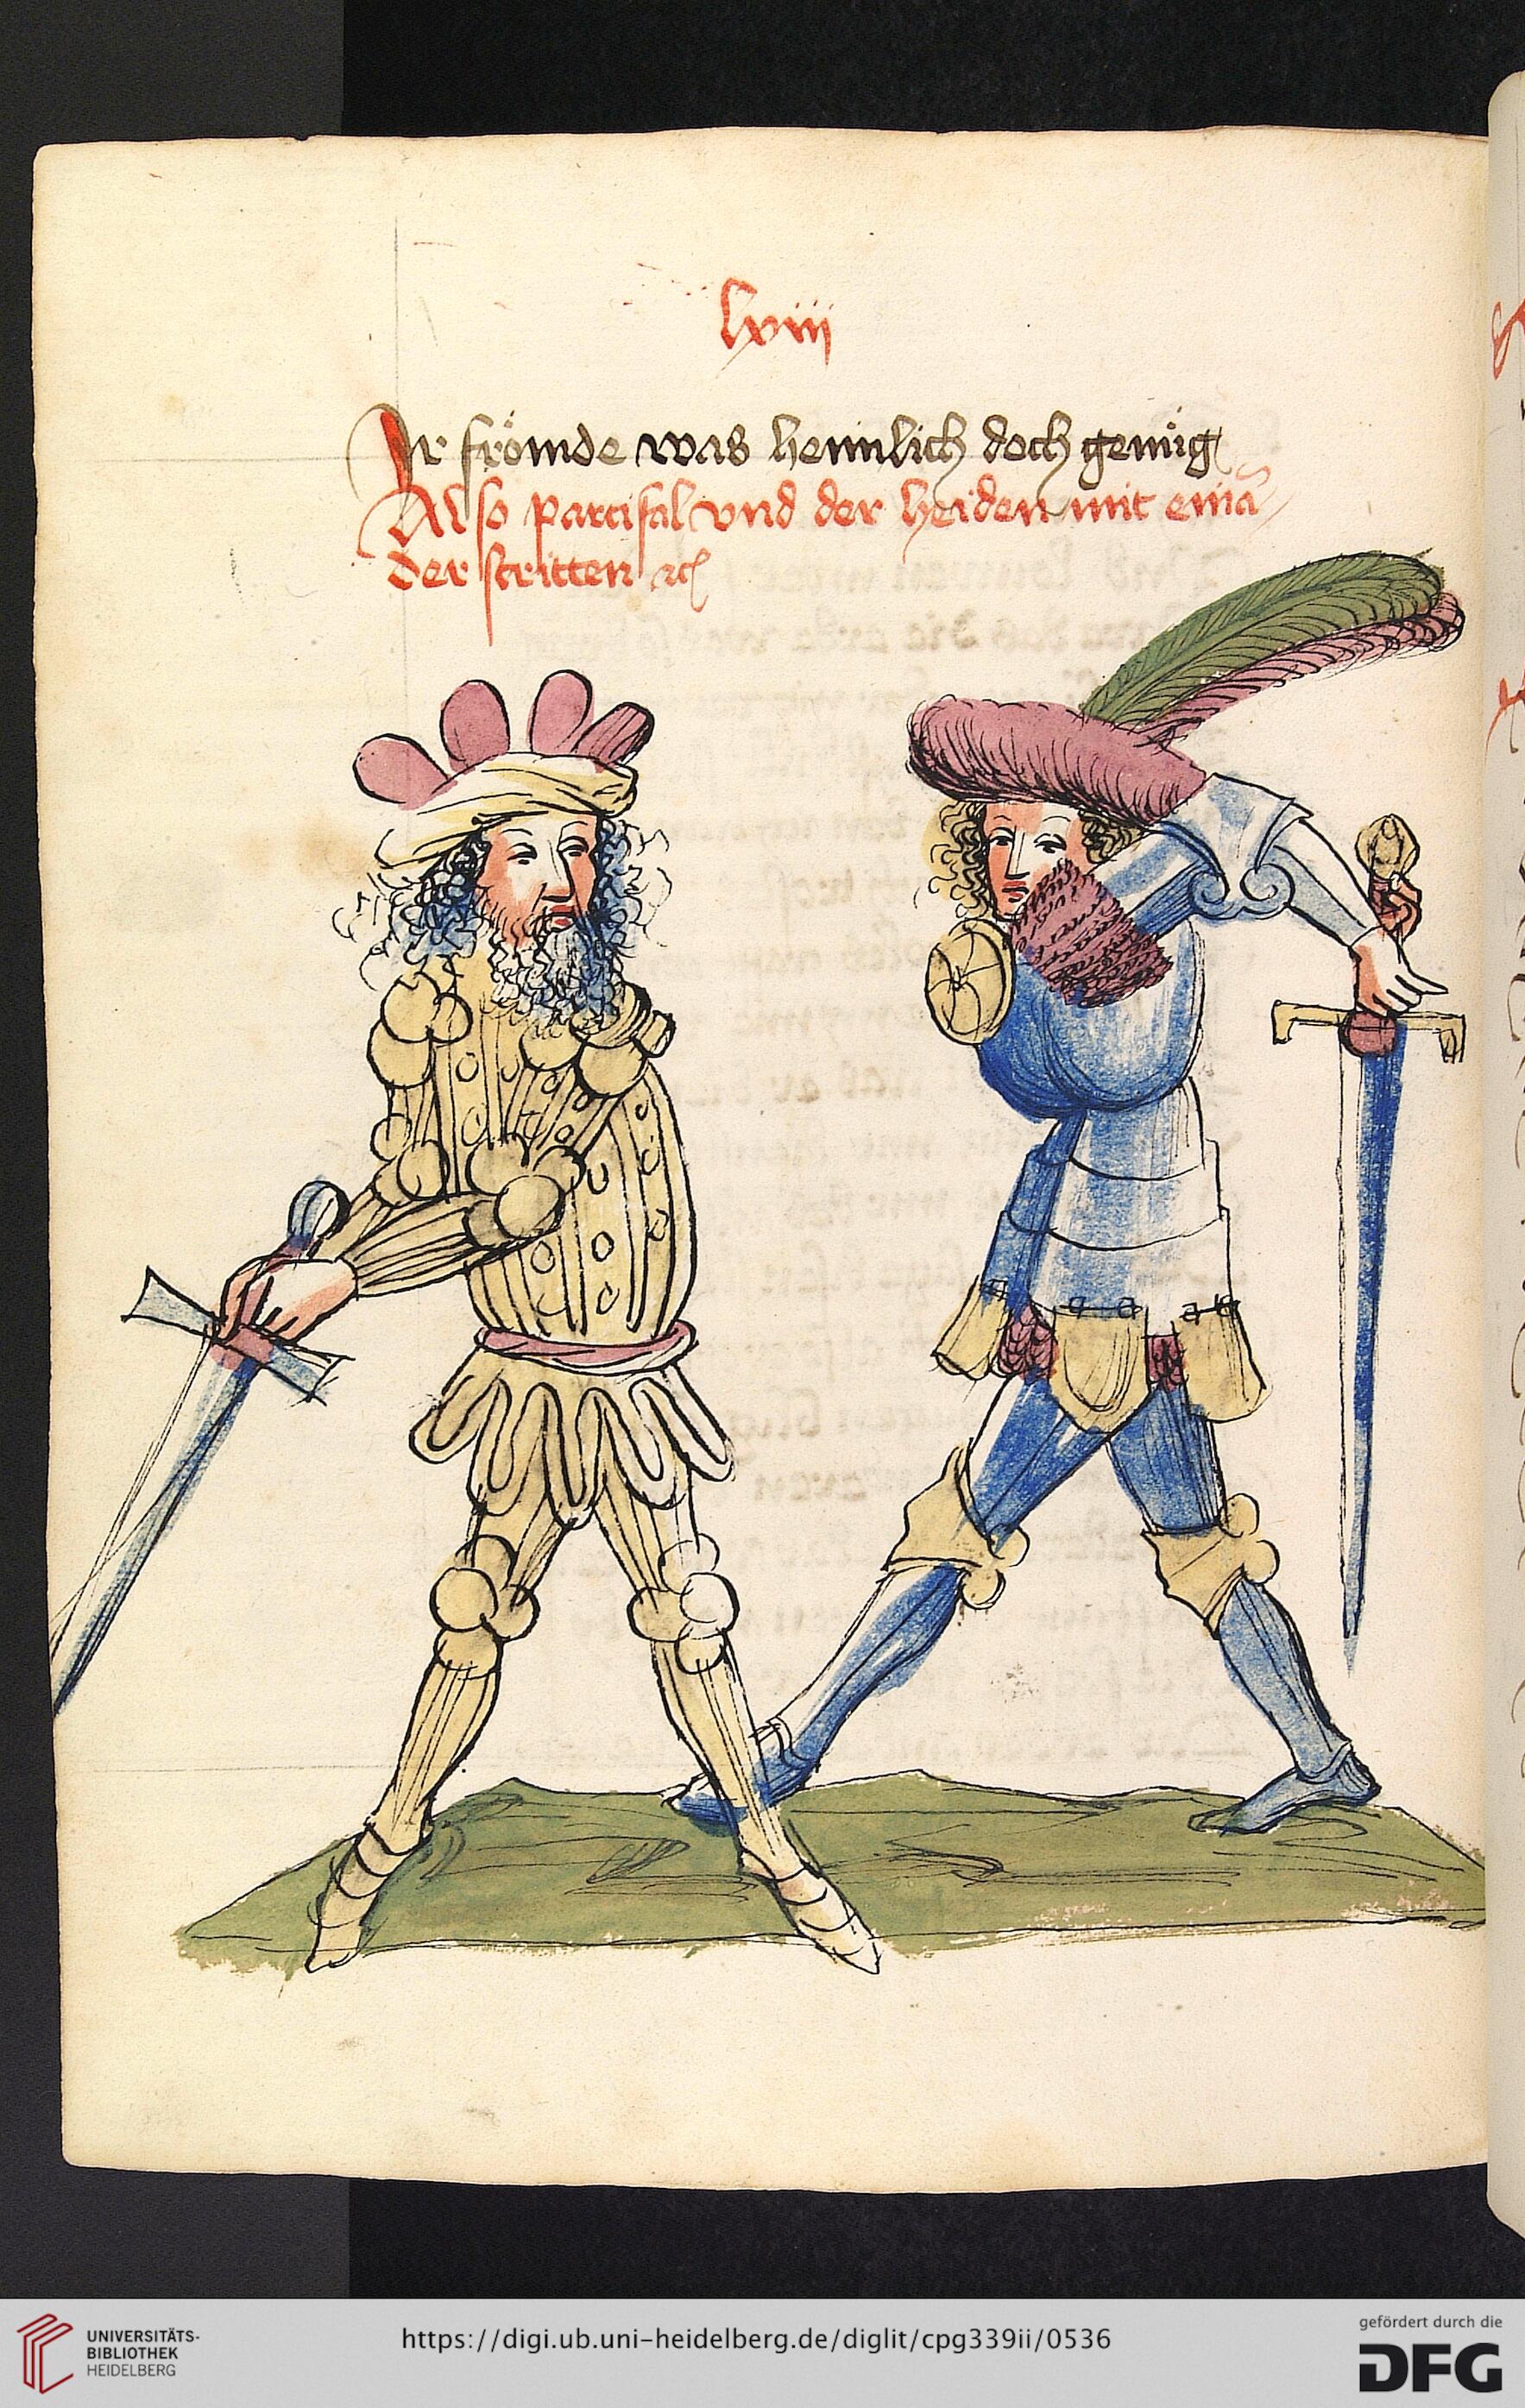 lxiii
Ir frömde was heimlich doch genu̍g
Also parcifal vnd der heiden mit einā-
der stritten ꝛc
UNIVERSITÄTS-
BIBLIOTHEK
HEIDELBERG
https://digi.ub.uni-heidelberg.de/diglit/cpg339ii/0536
gefördert durch die
DFG